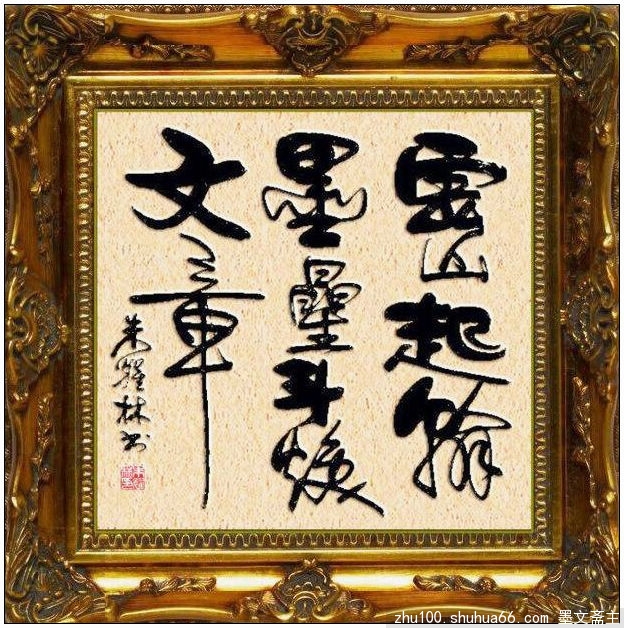 雲山起翰
墨星斗焕
文章
朱 林书
zhu100.shuhua66.com 墨文斋主